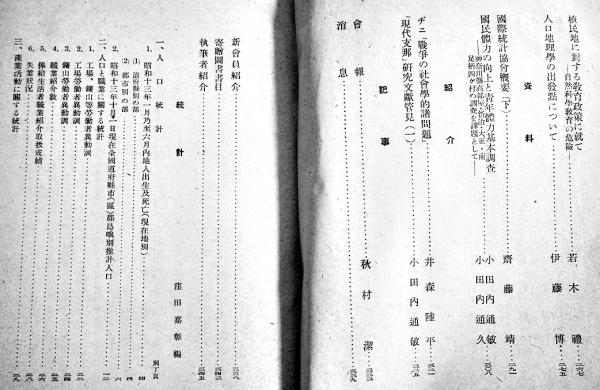 植民地に對する教育政策に就て
―自然科學教育の危險―
若木禮 二六七
人口地理學の出發點について
伊藤博 二七五
資料
國際統計協會概要(下)
齋藤靖 二九一
國民體力の向上と青年體力基本調査
―神奈川縣高部屋・新治・大正・南
足柄四ケ村の調査を課題として―
小田内通敏
小田内通久 三〇八
紹介
ヂニ「戰爭の社會學的諸問題」
井森陸平 三二一
「現代支那」研究文獻管見(一)
小田内通敏
記事
會報
秋村潔
消息
新會員紹介 三三八
寄贈圖書書目 三四五
執筆者紹介
統計
窪田嘉彰編
一、人口統計 別丁頁
1、昭和十三年一月乃至六月内地人出生及死亡(現在地別)
(1) 道府縣別の部 四
(2) 都市別の部 六
2、昭和十三年十月一日現在全國道府縣市(區)郡島嶼別推計人口
二、人口と職業に關する統計
1、工場、鑛山等勞働者異動調
2、工場勞働者異動調
3、鑛山勞働者異動調
4、職業紹介取扱成績
5、俸給生活者職業紹介取扱成績
6、失業狀況
三、產業活動に關する統計